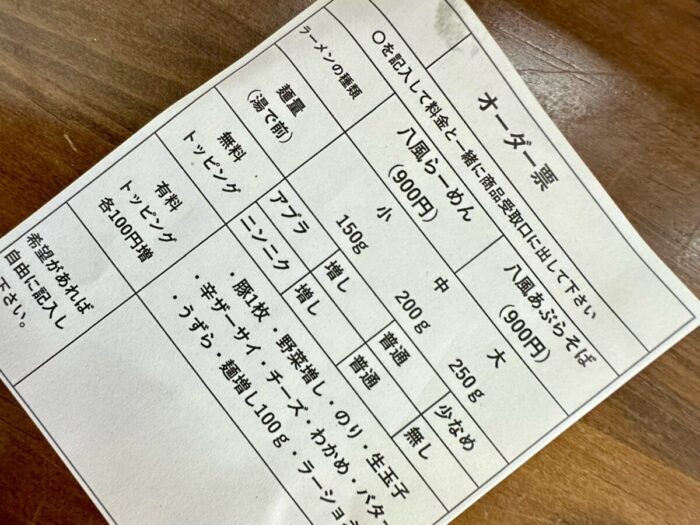 オーダー票
〇を記入して料金と一緒に商品受取口に出して下さい
ラーメンの種類
八風らーめん
(900円)
八風あぶらそば
(900円)
麺量
(湯で前)
小
150g
中
200g
大
250g
無料
トッピング
アブラ 増し 普通 少なめ
ニンニク 増し 普通 無し
有料
トッピング
各100円増
・豚1枚・野菜増し・のり・生玉子
・辛ザーサイ・チーズ・わかめ・バター
・うずら・麺増し100g・ラーショ
希望があれば
自由に記入し
下さい。